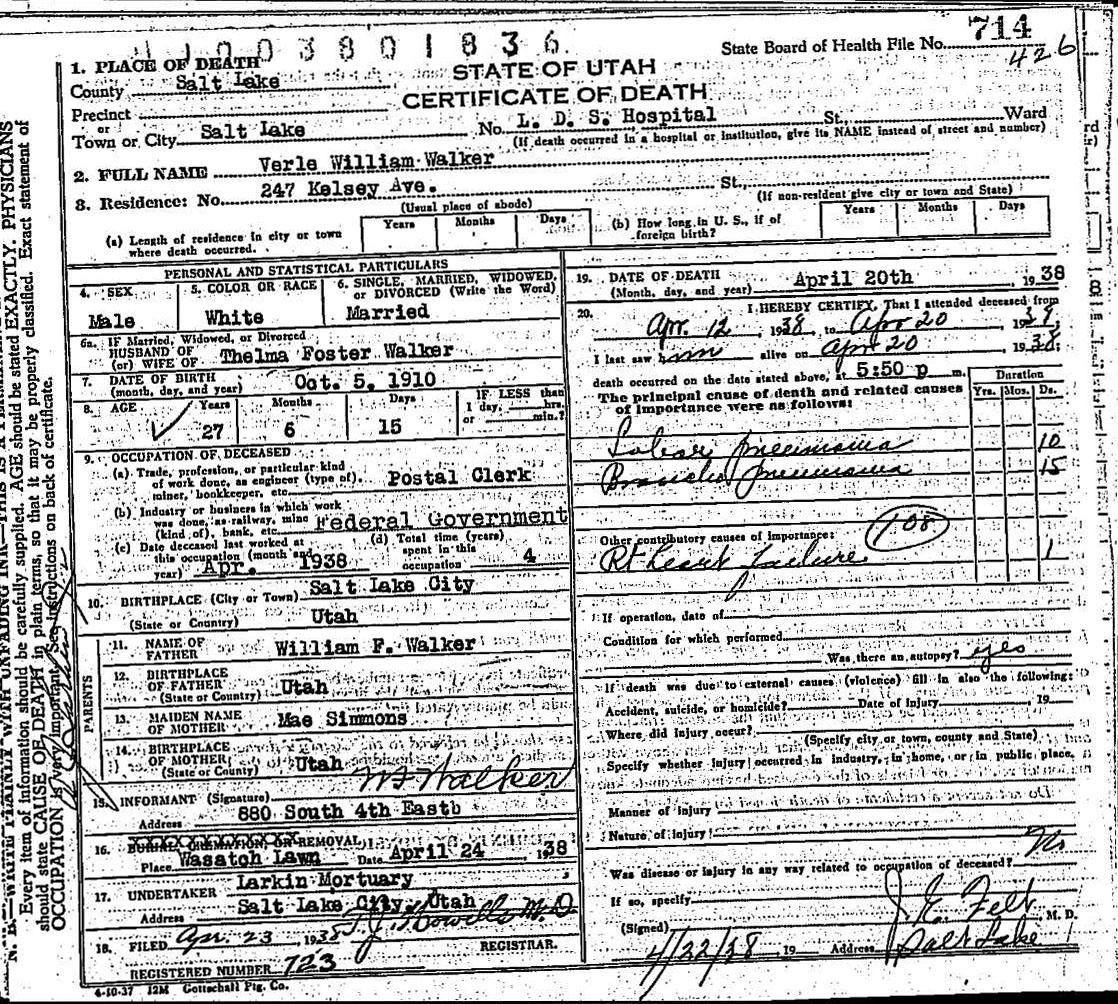 4 1 0 0 3 8 0 1 8 3 6.
State Board of Health File No. 714
426
1. PLACE OF DEATH
County Salt Lake
STATE OF UTAH
CERTIFICATE OF DEATH
Precinct
or
Town or City Salt Lake No. L. D. S. Hospital St., Ward
(If death occurred in a hospital or institution, give its NAME instead of street and number)
2. FULL NAME Verle William Walker
3. Residence: No. 247 Kelsey Ave. St.,
(Usual place of abode) (If non-resident give city or town and State)
(a) Length of residence in city or town where death occurred. Years Months Days
(b) How long in U. S., if of foreign birth? Years Months Days
PERSONAL AND STATISTICAL PARTICULARS
4. SEX 5. COLOR OR RACE 6. SINGLE, MARRIED, WIDOWED, or DIVORCED (Write the Word)
Male White Married
6a. IF Married, Widowed, or Divorced
HUSBAND OF
(or) WIFE OF Thelma Foster Walker
7. DATE OF BIRTH
(month, day, and year) Oct. 5, 1910
8. AGE Years Months Days IF LESS than
1 day, hrs.
or min.?
27 6 15
9. OCCUPATION OF DECEASED
(a) Trade, profession, or particular kind
of work done, as engineer (type of),
miner, bookkeeper, etc. Postal Clerk
(b) Industry or business in which work
was done, as railway, mine
(kind of), bank, etc. Federal Government
(c) Date deceased last worked at
this occupation (month and
year) Apr. 1938
(d) Total time (years)
spent in this
occupation 4
10. BIRTHPLACE (City or Town) Salt Lake City
(State or Country) Utah
PARENTS
11. NAME OF
FATHER William F. Walker
12. BIRTHPLACE
OF FATHER
(State or Country) Utah
13. MAIDEN NAME
OF MOTHER Mae Simmons
14. BIRTHPLACE
OF MOTHER
(State or County) Utah
15. INFORMANT (Signature) W F Walker
Address 880 South 4th East
16. BURIAL, CREMATION, OR REMOVAL
Place Wasatch Lawn Date April 24 1938
17. UNDERTAKER Larkin Mortuary
Address Salt Lake City, Utah
18. FILED Apr. 23, 1938 T. J. Howells M. D
REGISTRAR.
REGISTERED NUMBER 723
4-10-37 12M Gottschall Ptg. Co.
19. DATE OF DEATH April 20th 1938
(Month, day, and year)
20. I HEREBY CERTIFY, That I attended deceased from
Apr. 12 1938, to Apr 20 19
I last saw him alive on Apr 20 1938;
death occurred on the date stated above, at 5:50 p m.
The principal cause of death and related causes
of importance were as follows:
Duration
Yrs. Mos. Ds.
Lobar pneumonia 10
Broncho pneumonia 15
108
Other contributory causes of importance:
Rt heart failure 1
If operation, date of
Condition for which performed
Was there an autopsy? yes
If death was due to external causes (violence) fill in also the following:
Accident, suicide, or homicide? Date of injury , 19
Where did injury occur?
(Specify city or town, county and State)
Specify whether injury occurred in industry, in home, or in public place.
Manner of injury
Nature of injury
Was disease or injury in any way related to occupation of deceased? No
If so, specify
(Signed) J. E. Felt M. D.
4/22/38 19 Address Salt Lake
N. B.—WRITE PLAINLY WITH UNFADING INK—THIS IS A
Every item of information should be carefully supplied. AGE should be stated EXACTLY. PHYSICIANS
should state CAUSE OF DEATH in plain terms, so that it may be properly classified. Exact statement of
OCCUPATION is very important. See instructions on back of certificate.